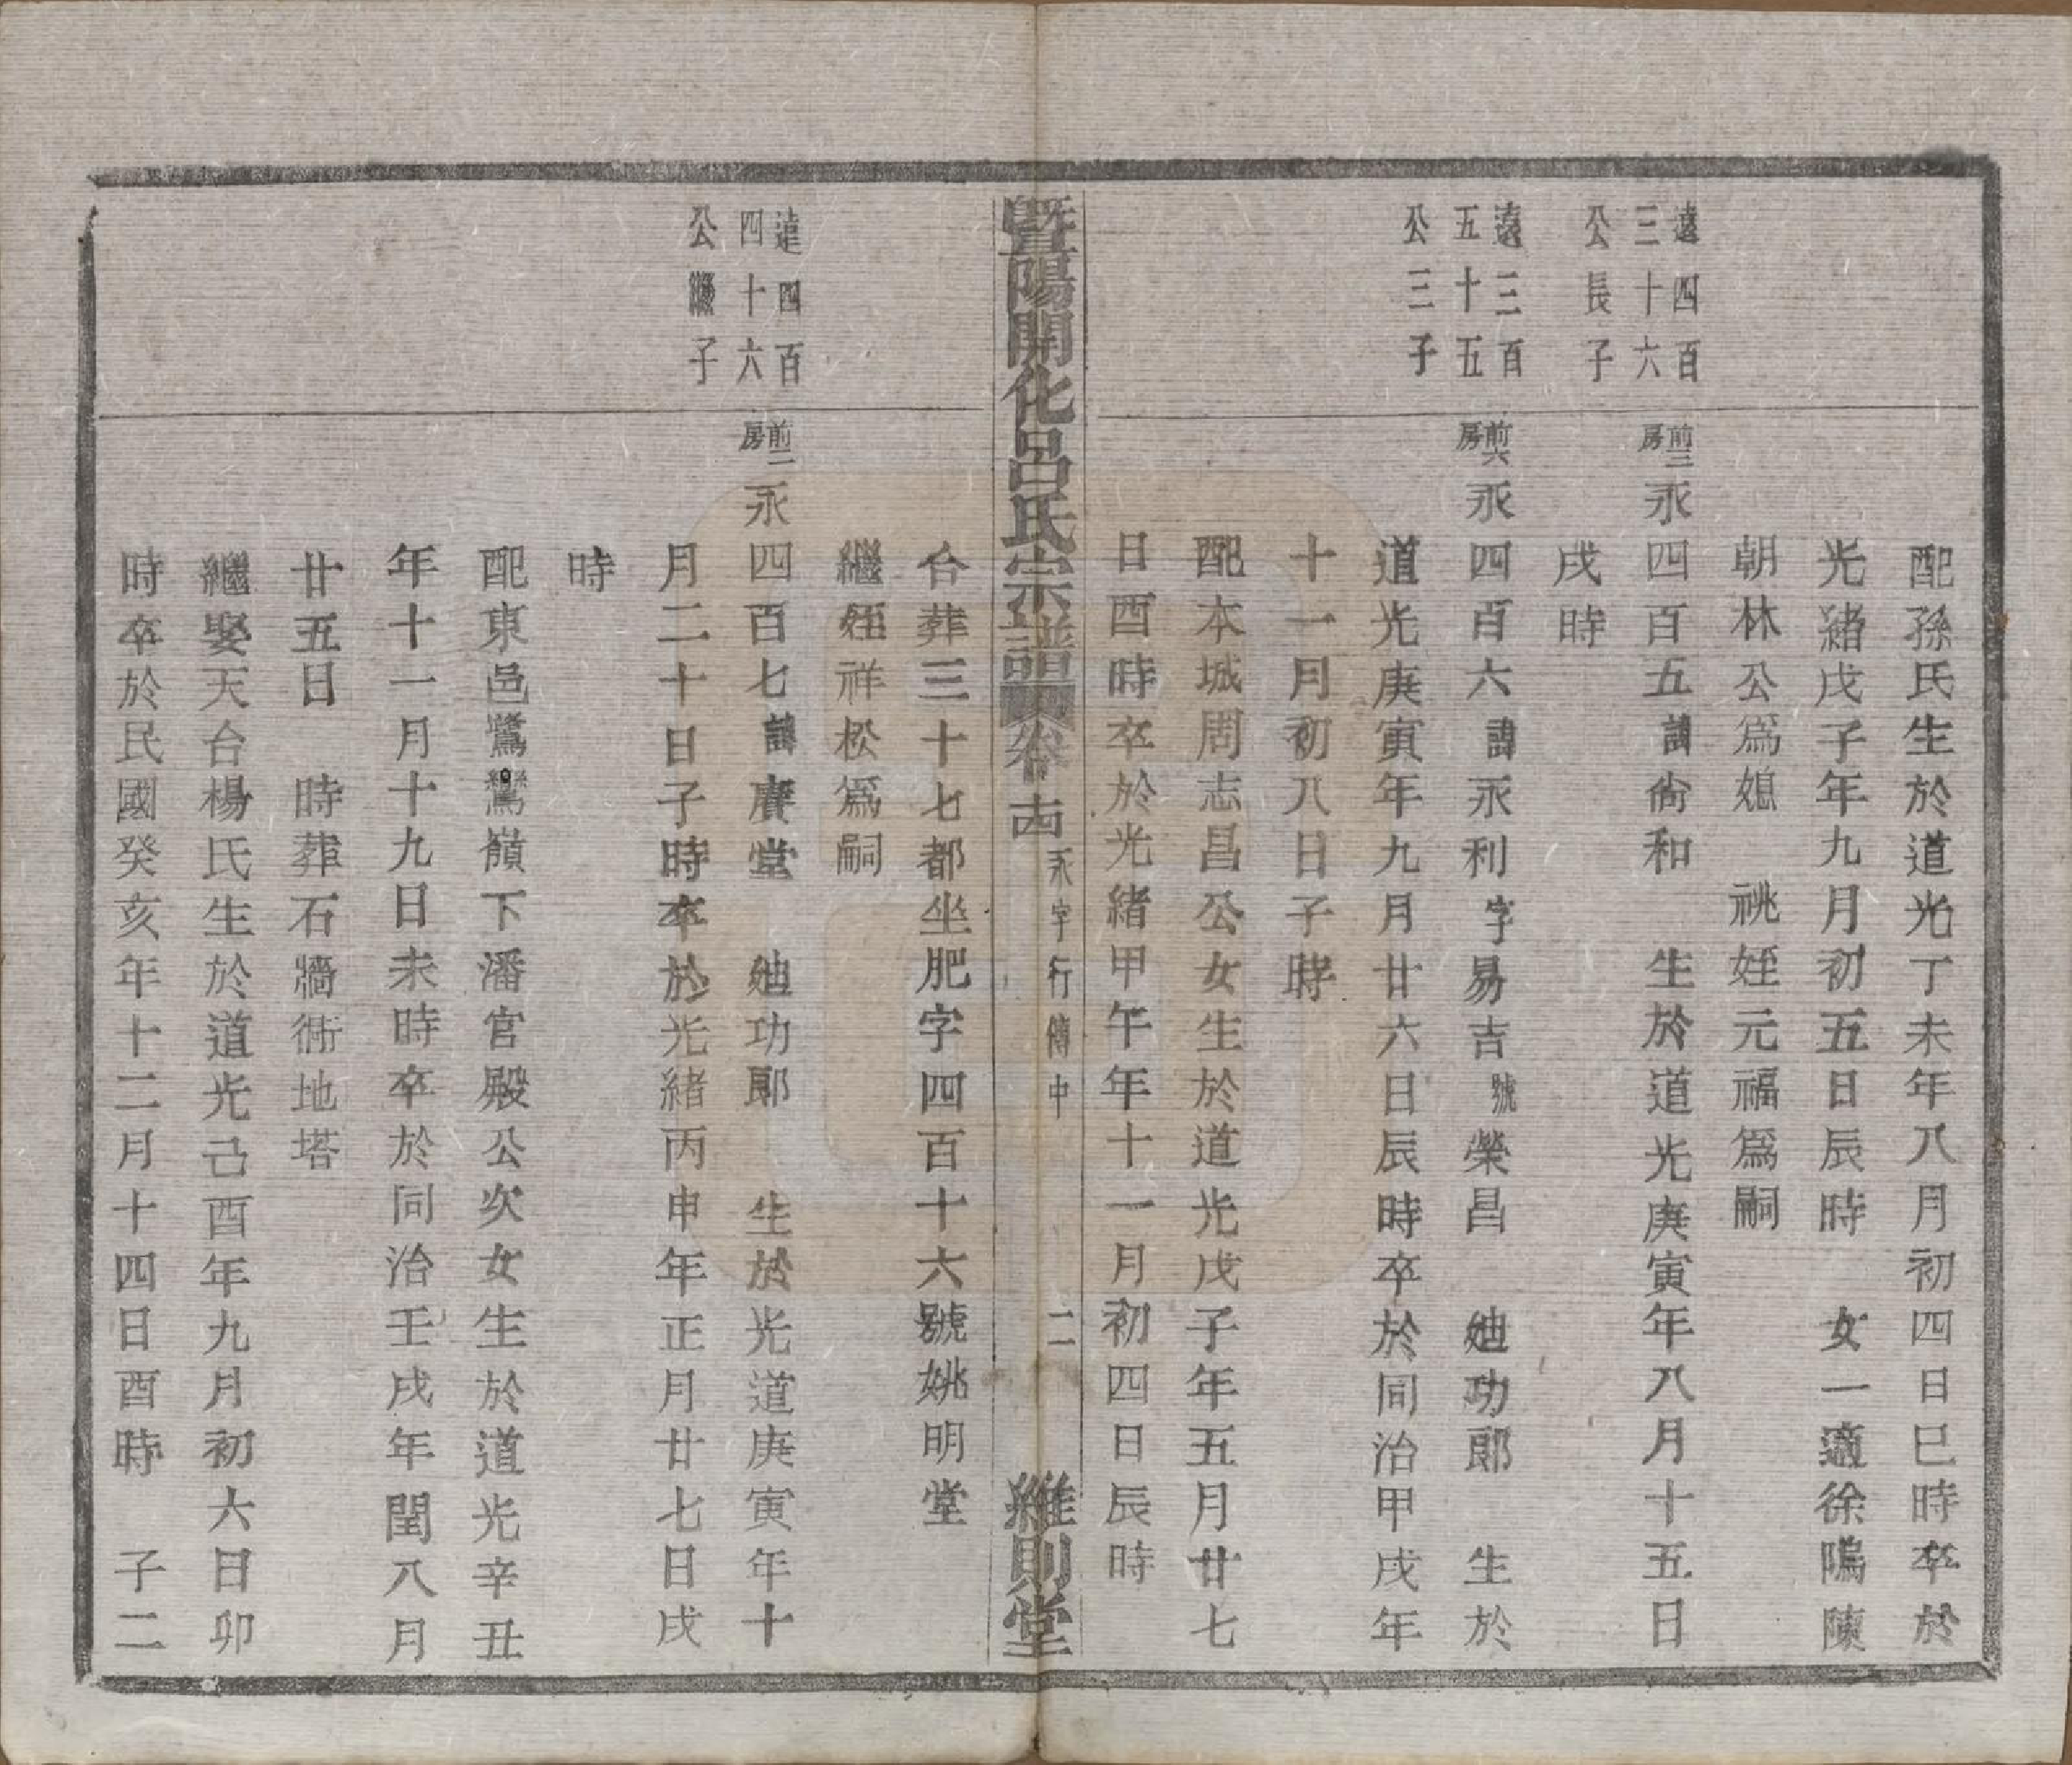 配孫氏生於道光丁未年八月初四日巳時卒於
光緒戊子年九月初五日辰時　女一適徐隖陳
朝林公爲媳　祧姪元福爲嗣
遠四百三十六公長子
前三房
永四百五諱尙和　生於道光庚寅年八月十五日
戌時
遠三百五十五公三子
前六房
永四百六諱永利字易吉號榮昌　廸功郞　生於
道光庚寅年九月廿六日辰時卒於同治甲戌年
十一月初八日子時
配本城周志昌公女生於道光戊子年五月廿七
日酉時卒於光緒甲午年十一月初四日辰時
暨陽開化呂氏宗譜　卷十四　永字行傳中　二　維則堂
合葬三十七都坐肥字四百十六號姚明堂
繼姪祥松爲嗣
遠四百四十六公繼子
前二房
永四百七諱賡堂　廸功郞　生於光道庚寅年十
月二十日子時卒於光緒丙申年正月廿七日戌
時
配東邑鷺鷥嶺下潘官殿公次女生於道光辛丑
年十一月十九日未時卒於同治壬戌年閏八月
廿五日　時葬石牆衖地塔
繼娶天台楊氏生於道光己酉年九月初六日卯
時卒於民國癸亥年十二月十四日酉時　子二